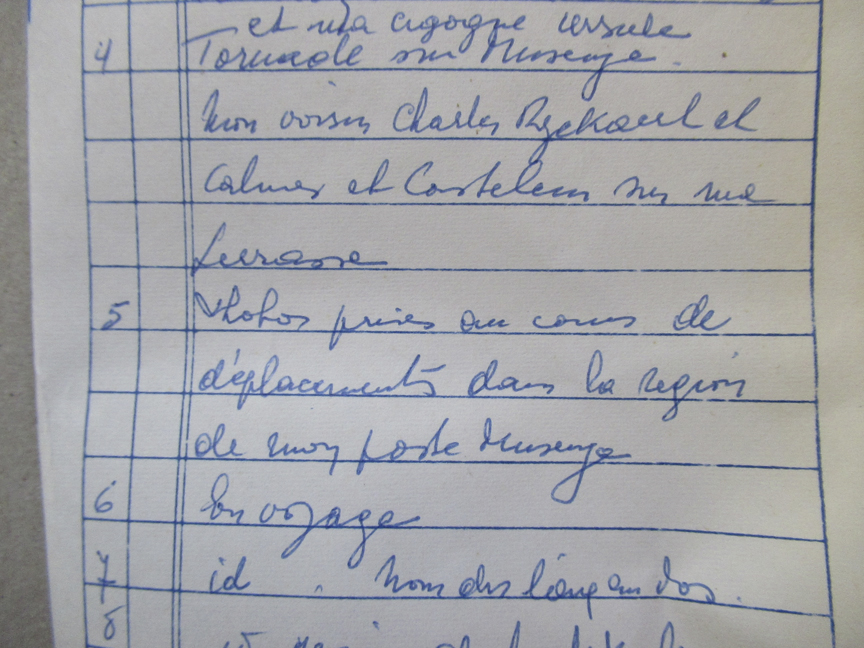 et ma cigogne Ursule
4 Tornade sur Musenge.
Mon voisin Charles Ryckaert et
Calmes et Castelein sur ma
terrasse
5 Photos prises au cours de
déplacements dans la région
de mon poste Musenge
6 En voyage
7 id. Noms des au dos.
8